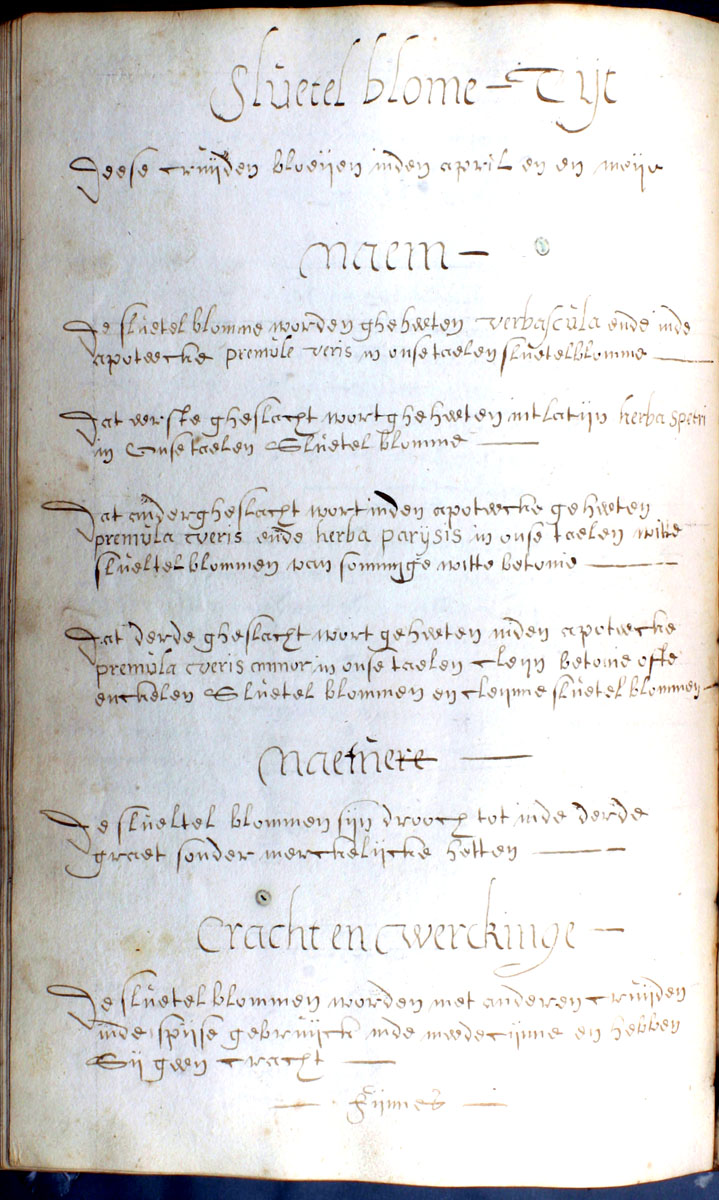 Sluetel blome – Tijt
Deese cruijden bloeijen inden april en en meije
Naem –
De sluetel blomme worden gheheeten verbascula ende inde
apoteecke premule veris in onse taelen sluetelblomme
Dat eerste gheslacht wort ghehheeten int latijn herba speeri
in Onse taelen Sluetel blomme
Dat andergheslacht wort inden apoteecke geheeten
premula cveris ende herba parijsis in onse taelen witte
slueltel blommen van sommighe witte betonie
Dat derde gheslacht wort geheeten inden apoteecke
premula cveris minnor in onse taelen cleijn betonie offe
enckelen Sluetel blommen en cleijnne sluetel blommen
Naetuere
De slueltel blommen sijn drooch tot inde derde
graet sonder merckelijcke hetten
Cracht en cwerckinge –
De sluetel blommen worden met anderen cruijden
inde spijse gebruijck inde medecijnne en hebben
Sij geen cracht
Fijnnes